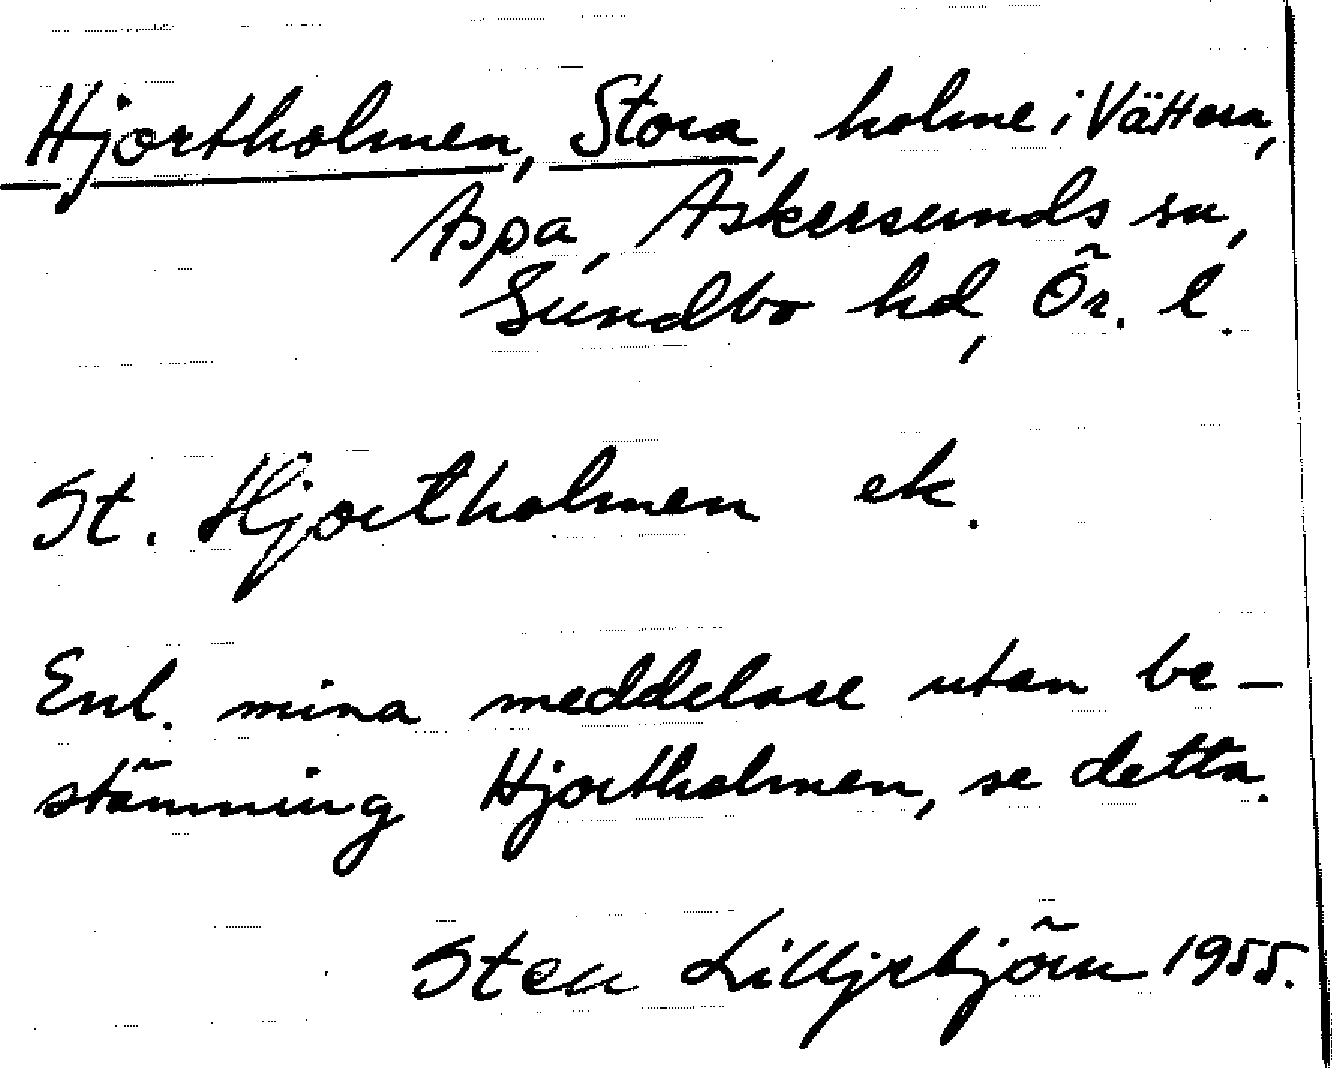 Hjortholmen, Stora, holme i Vättern,
Aspa, Askersunds sn,
Sundbo hd, Ör. l.
St. Hjortholmen ek.
Enl. mina meddelare utan be-
stämning Hjortholmen, se detta.
Sten Lilljebjörn 1955.